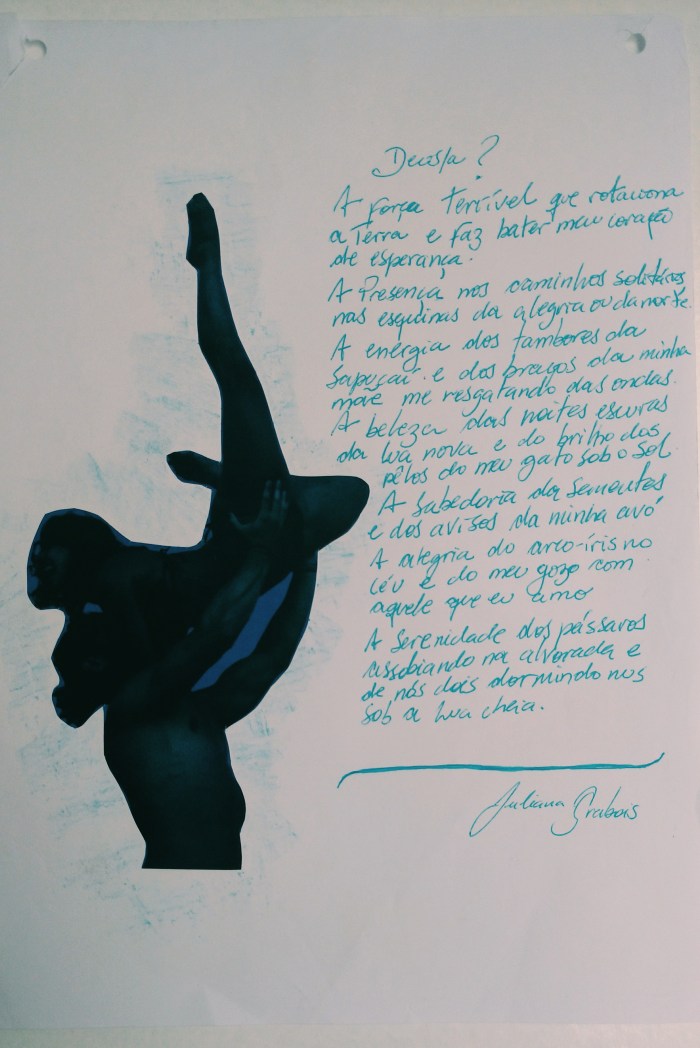 A força terrível que rotaciona
a Terra e faz bater meu coração
de esperança.
A Presença nos caminhos solitários
nas esquinas da alegria ou da morte.
A energia dos tambores da
Sapucaí e dos braços da minha
mãe me resgatando das ondas.
A beleza das noites escuras
da lua nova e do brilho dos
pêlos do meu gato sob o sol
A Sabedoria da Sementes
e dos avisos da minha avó
A alegria do arco-íris no
céu e do meu gozo com
aquele que eu amo
A serenidade dos pássaros
assobiando na alvorada e
de nós dois dormindo nus
sob a lua cheia.
Juliana Grabois